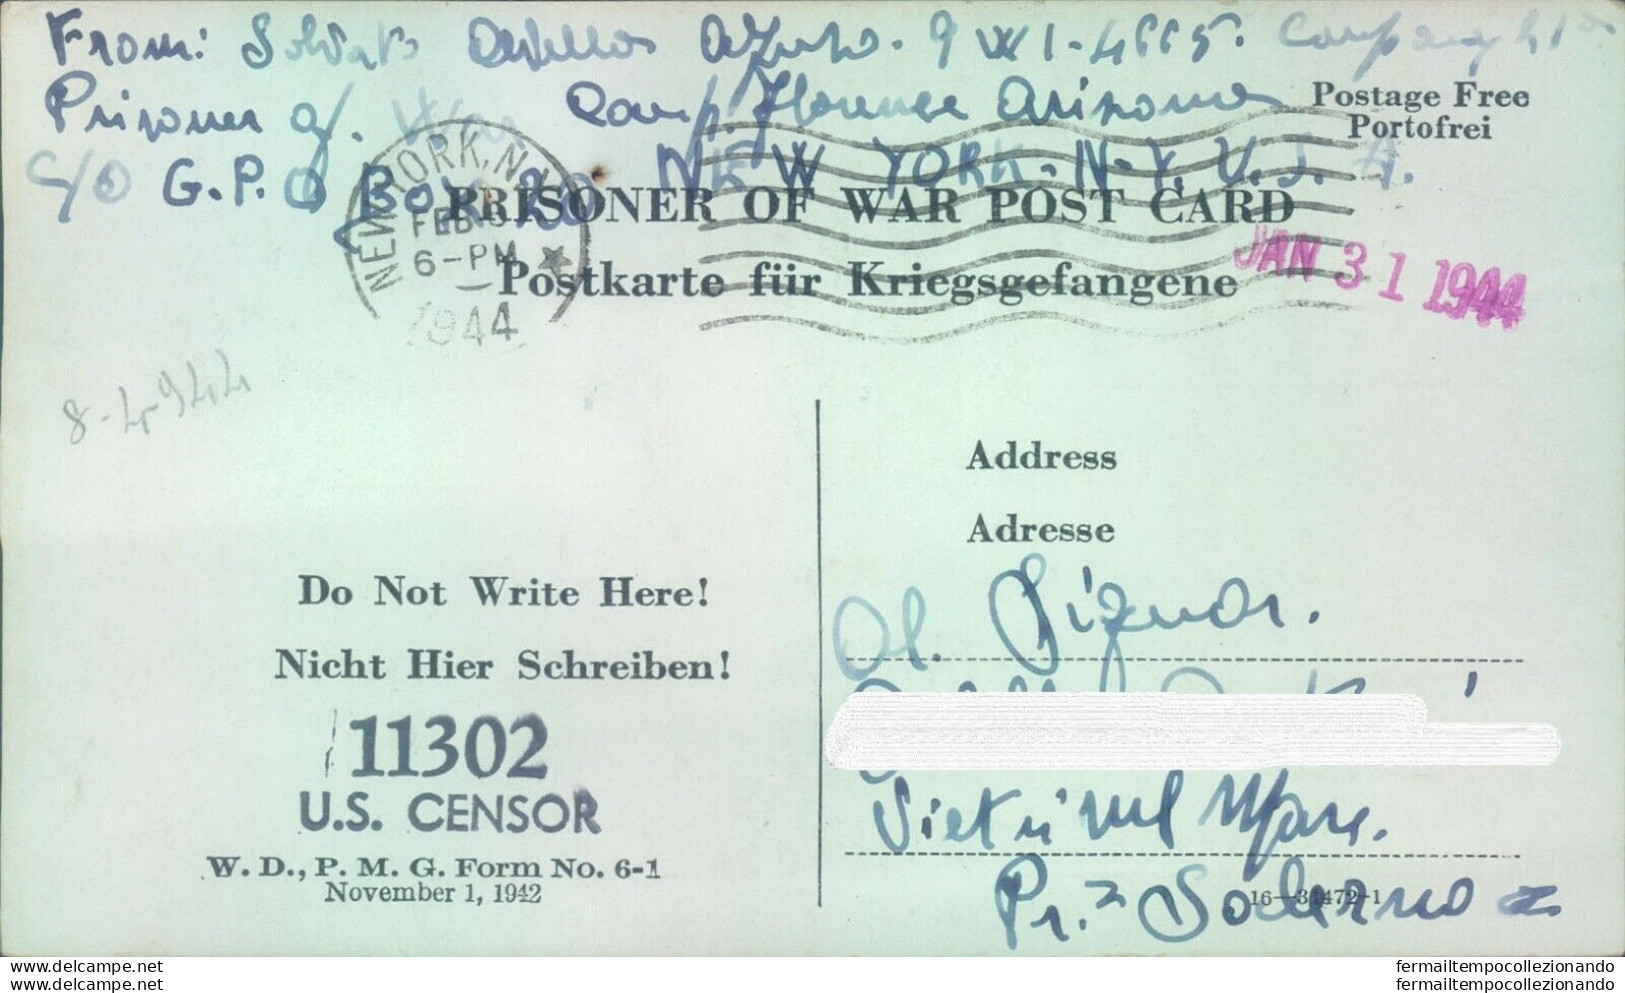 From: Soldato Avella 9 WI-4665. Company
Prisoner of. War Camp. Florence Arizona
Postage Free
Portofrei
C/O G.P.O Box 20 NEW YORK-N-Y. U.S.A.
NEW YORK, N.Y.
FEB
6-PM
1944
PRISONER OF WAR POST CARD
Postkarte für Kriegsgefangene
JAN 31 1944
8-4-944
Address
Adresse
Do Not Write Here!
Nicht Hier Schreiben!
Al. Signor.
11302
U.S. CENSOR
Vietri sul Mare.
W. D., P. M. G. Form No. 6-1
November 1, 1942
16—31472-1
Pr.z Salerno
www.delcampe.net
www.delcampe.net
fermailtempocollezionando
fermailtempocollezionando